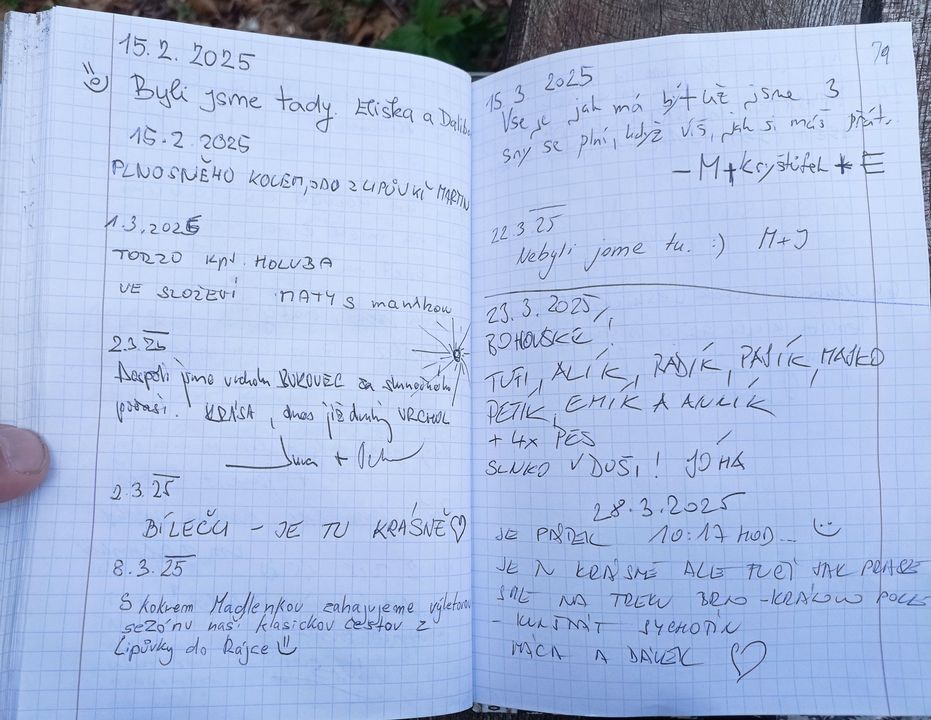 15.2.2025
Byli jsme tady. Eliška a Dalibo
15.2.2025
PLNOSNĚHO KOLEM, DO Z LIPŮVKÍ MARTIN
1.3.2025
TORZO kpt. HOLUBA
VE SLOŽENÍ MATY S maníkou
2.3.25
Dospěli jsme vrcholu BUKOVEC za slunečného
počasí. KRÁSA, dnes již druhý VRCHOL
2.3.25
BÍLEČCI - JE TU KRÁSNĚ ♡
8.3.25
S kokrem Madlenkou zahajujeme výletovou
sezónu naší klasickou cestou z
Lipůvky do Rájce
79
15.3 2025
Vše je jak má být už jsme 3
sny se plní, když víš, jak si máš přát.
- M + Kryštůfek + E
22.3.25
Nebyli jsme tu. :) M+J
23.3.2025
BOHOUŠKE
TUTI, ALÍK, RADÍK, PAJÍK, MAJKO
PETÍK, EMÍK A ANNÍK
+ 4x PES
SLNKO V DUŠI! JÓ HÁ
28.3.2025
JE PÁTEK 10:17 HOD...
JE N KRÁSNĚ ALE FUČÍ JAK PRASE
SME NA TREKU BRNO - KRÁLOVO POLE
- KUNŠTÁT SYCHOTÍN
MÁCA A DÁVEK ♡